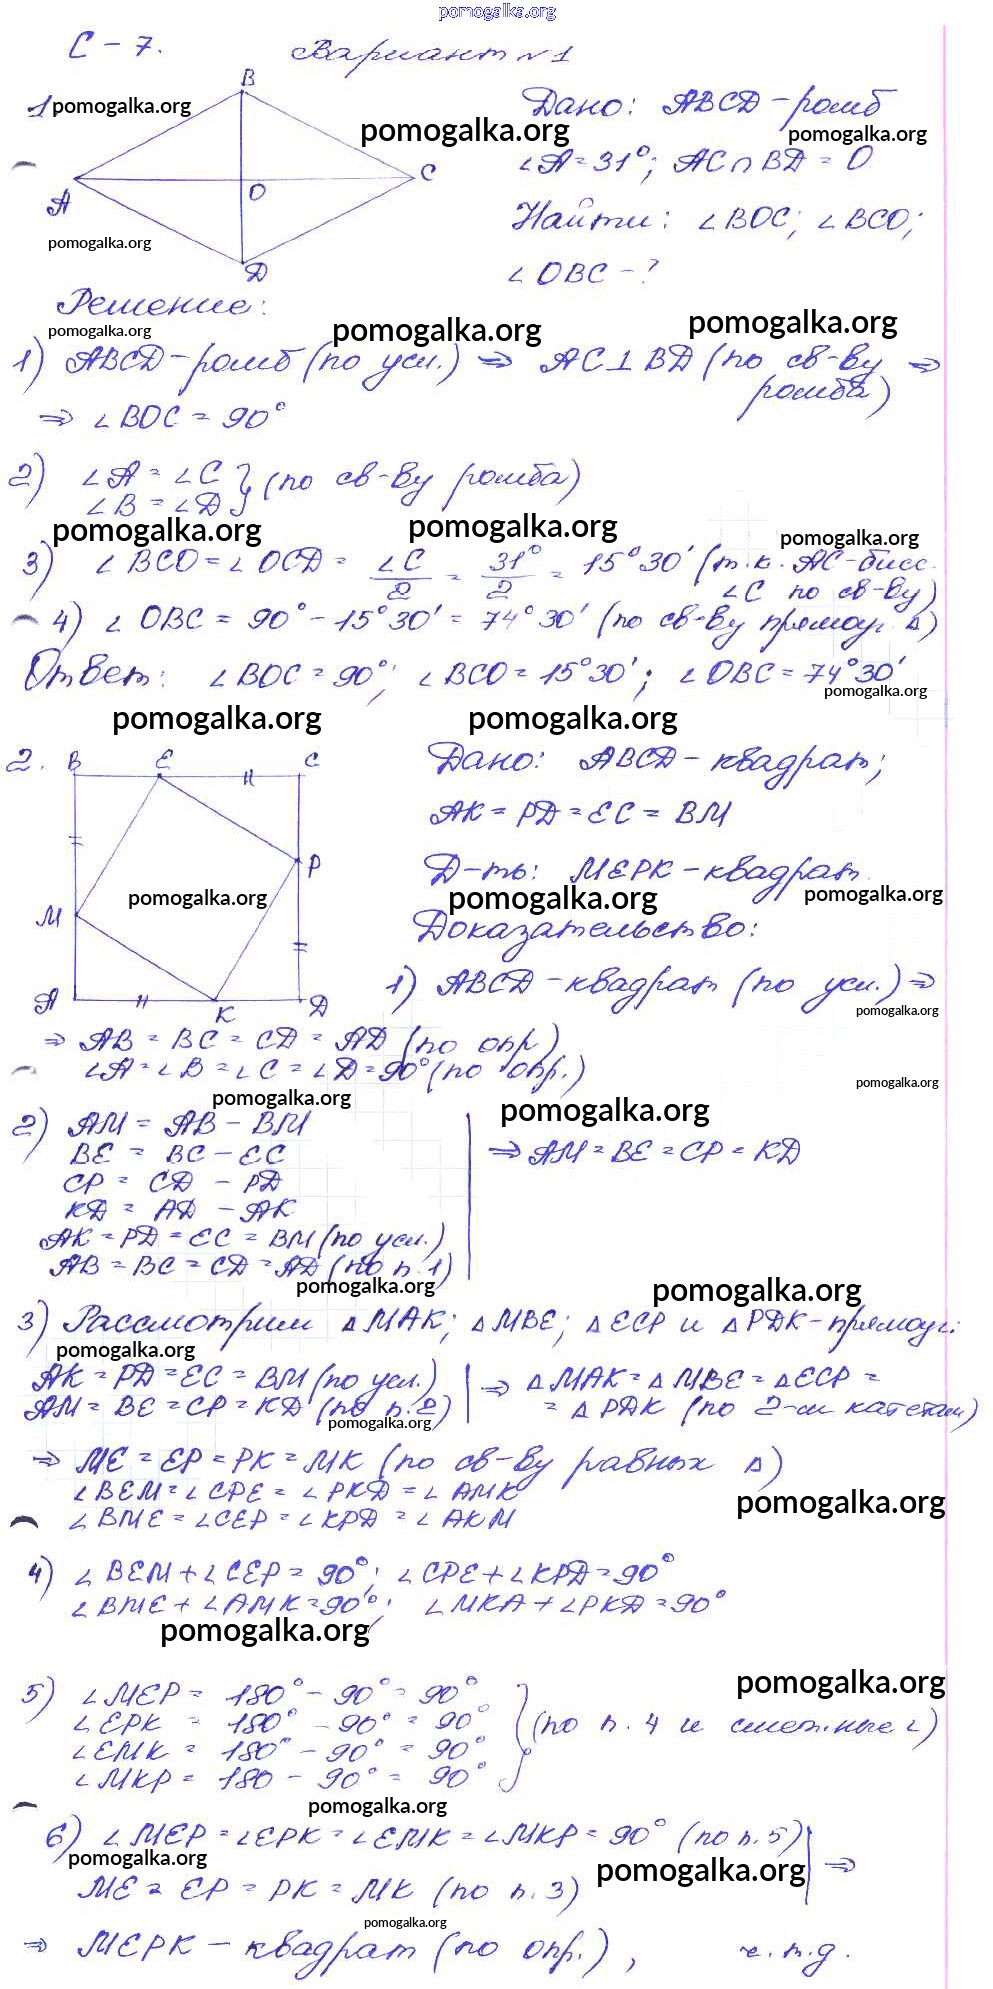 pomogalka.org
С – 7. Вариант №1
1 pomogalka.org
B
A
O
C
D
pomogalka.org
Дано: ABCD – ромб
pomogalka.org
pomogalka.org
∠A = 31°; AC ∩ BD = O
Найти: ∠BOC; ∠BCO;
∠OBC – ?
Решение:
pomogalka.org
pomogalka.org
pomogalka.org
1) ABCD – ромб (по усл.) ⇒ AC ⊥ BD (по св-ву ромба) ⇒
⇒ ∠BOC = 90°
2) ∠A = ∠C
∠B = ∠D } (по св-ву ромба)
pomogalka.org
pomogalka.org
pomogalka.org
3) ∠BCO = ∠OCD = ∠C/2 = 31°/2 = 15°30′ (т.к. AC – бисс.
∠C по св-ву)
4) ∠OBC = 90° – 15°30′ = 74°30′ (по св-ву прямоуг. Δ)
Ответ: ∠BOC = 90°; ∠BCO = 15°30′; ∠OBC = 74°30′
pomogalka.org
pomogalka.org
pomogalka.org
2. B E C
P
M
A K D
pomogalka.org
Дано: ABCD – квадрат;
AK = PD = EC = BM
Д-ть: MEPK – квадрат.
pomogalka.org
pomogalka.org
Доказательство:
1) ABCD – квадрат (по усл.) ⇒
pomogalka.org
⇒ AB = BC = CD = AD (по опр)
∠A = ∠B = ∠C = ∠D = 90° (по опр.)
pomogalka.org
pomogalka.org
pomogalka.org
2) AM = AB – BM
BE = BC – EC
CP = CD – PD
KD = AD – AK
AK = PD = EC = BM (по усл.)
AB = BC = CD = AD (по п. 1)
⇒ AM = BE = CP = KD
pomogalka.org
pomogalka.org
3) Рассмотрим ΔMAK; ΔMBE; ΔECP и ΔPDK – прямоуг.:
pomogalka.org
AK = PD = EC = BM (по усл.)
AM = BE = CP = KD (по п. 2)
⇒ ΔMAK = ΔMBE = ΔECP =
= ΔPDK (по 2-м катетам)
pomogalka.org
⇒ ME = EP = PK = MK (по св-ву равных Δ)
∠BEM = ∠CPE = ∠PKD = ∠AMK
∠BME = ∠CEP = ∠KPD = ∠AKM
pomogalka.org
4) ∠BEM + ∠CEP = 90°; ∠CPE + ∠KPD = 90°
∠BME + ∠AMK = 90°; ∠MKA + ∠PKD = 90°
pomogalka.org
pomogalka.org
5) ∠MEP = 180° – 90° = 90°
∠EPK = 180° – 90° = 90°
∠EMK = 180° – 90° = 90°
∠MKP = 180 – 90° = 90°
} (по п. 4 и смежные ∠)
pomogalka.org
6) ∠MEP = ∠EPK = ∠EMK = ∠MKP = 90° (по п. 5)
pomogalka.org
pomogalka.org
ME = EP = PK = MK (по п. 3) ⇒
pomogalka.org
⇒ MEPK – квадрат (по опр.), ч.т.д.